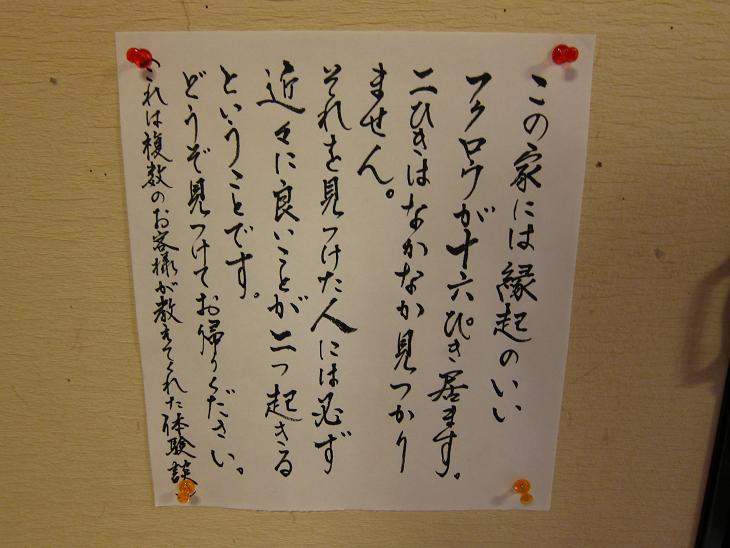 この家には縁起のいい
フクロウが十六ぴき居ます。
二ひきはなかなか見つかり
ません。
それを見つけた人には必ず
近々に良いことが二つ起きる
ということです。
どうぞ見つけてお帰りください。
これは複数のお客様が教えてくれた体験談